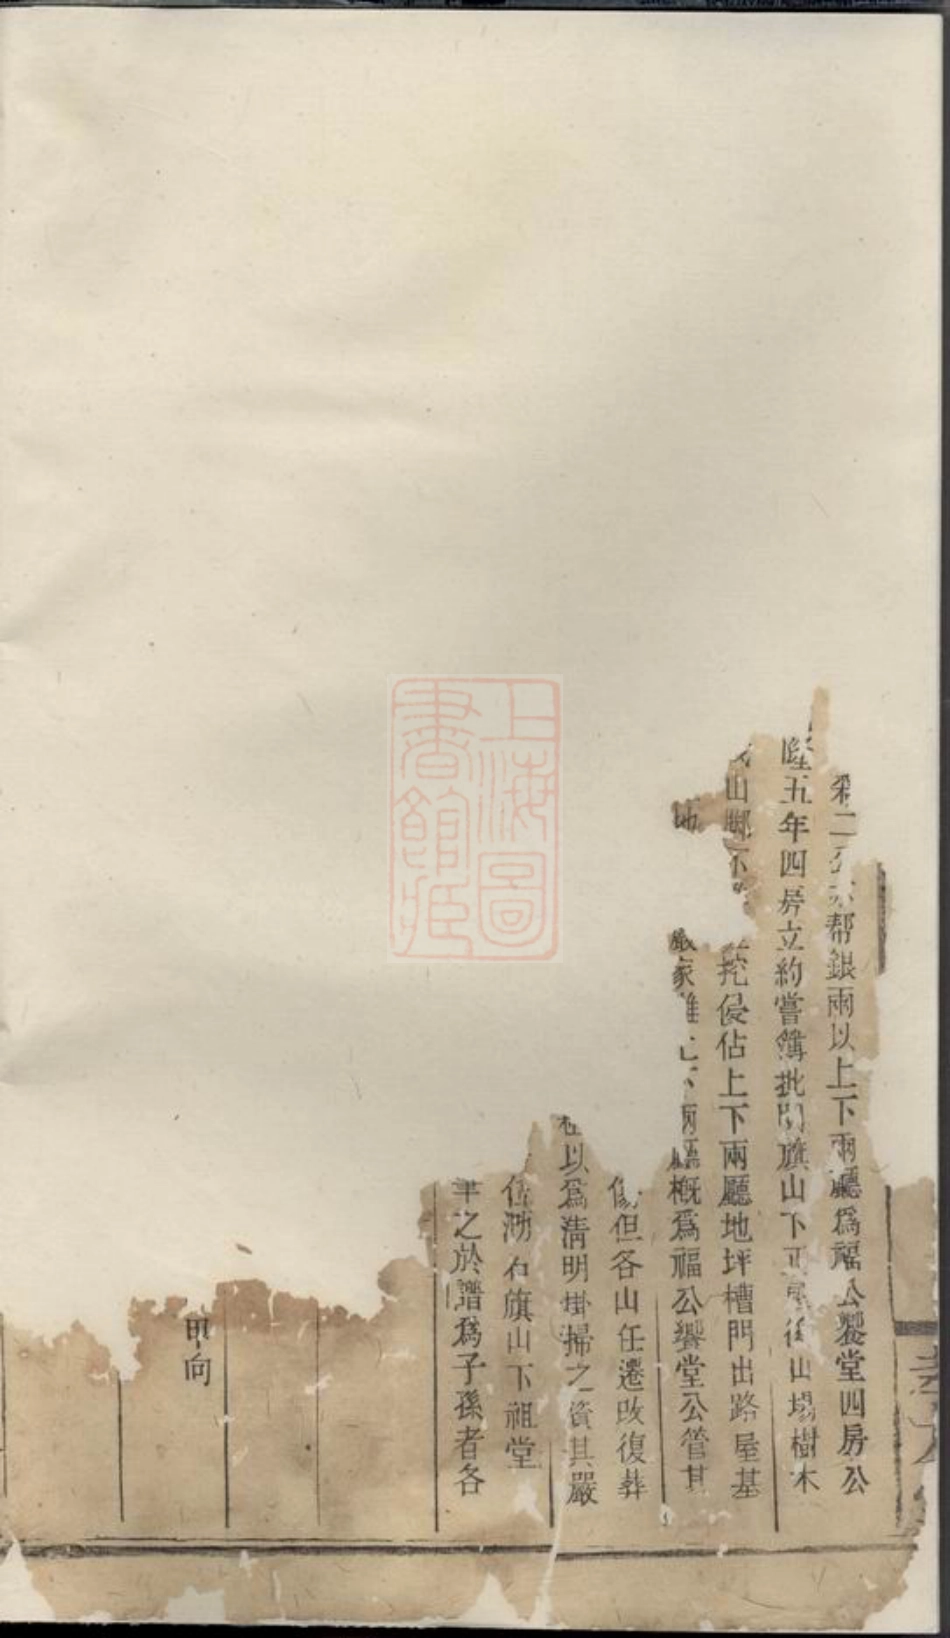 二公亦帮銀兩以上下兩廳爲福公饗堂四房公
隆五年四房立約嘗簿批開旗山下正屋後山場樹木
山脚不
挖侵佔上下兩廳地坪槽門出路屋基
地
嚴家雖上下兩廳概爲福公饗堂公管其
傷但各山任遷改復葬
在以爲清明掛掃之資其嚴
石旗山下祖堂
筆之於譜爲子孫者各
甲向
上海圖書館藏